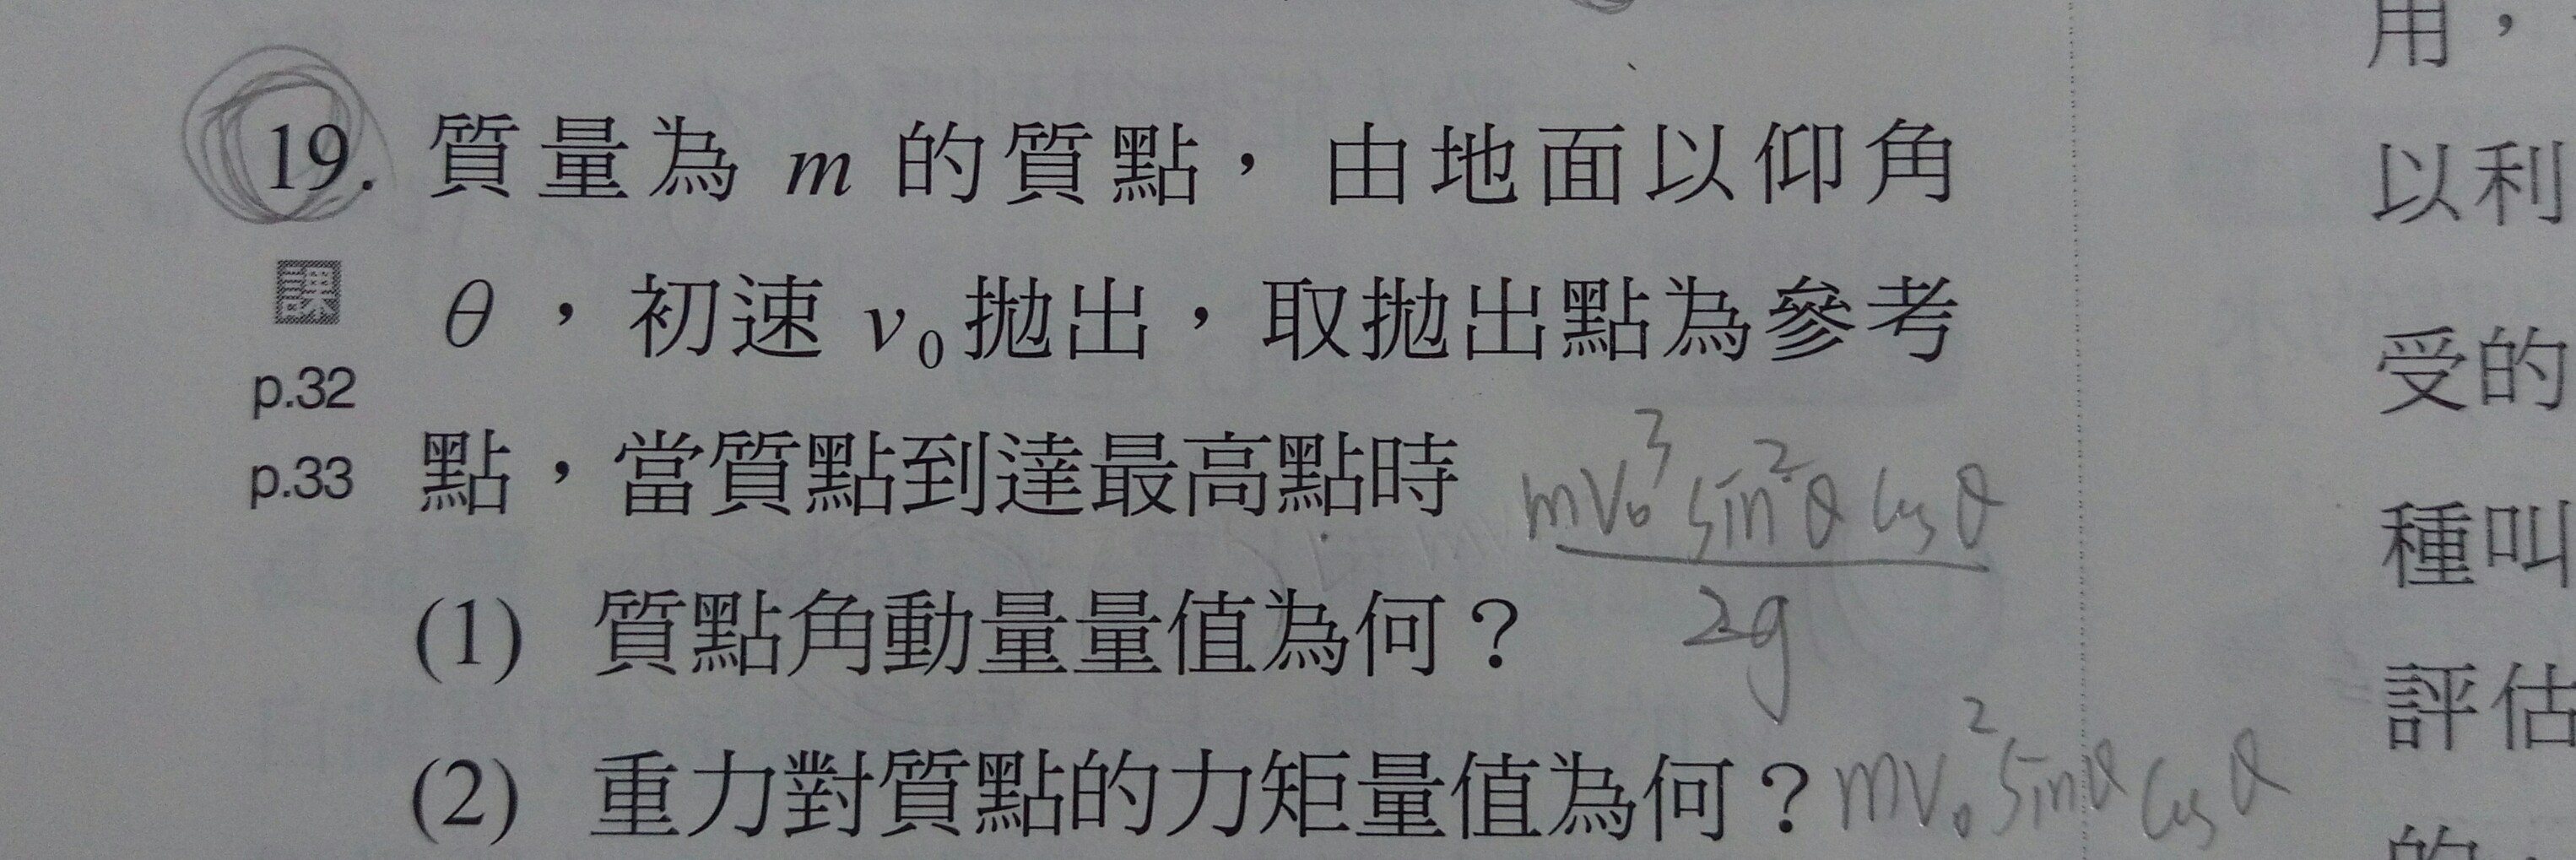 19. 質量為 m 的質點，由地面以仰角
課
θ，初速 v₀ 拋出，取拋出點為參考
p.32
p.33
點，當質點到達最高點時
mv₀³ sin²θ cosθ
2g
(1) 質點角動量量值為何？
(2) 重力對質點的力矩量值為何？ mv₀² sinθ cosθ
用，
以利
受的
種叫
評估
的